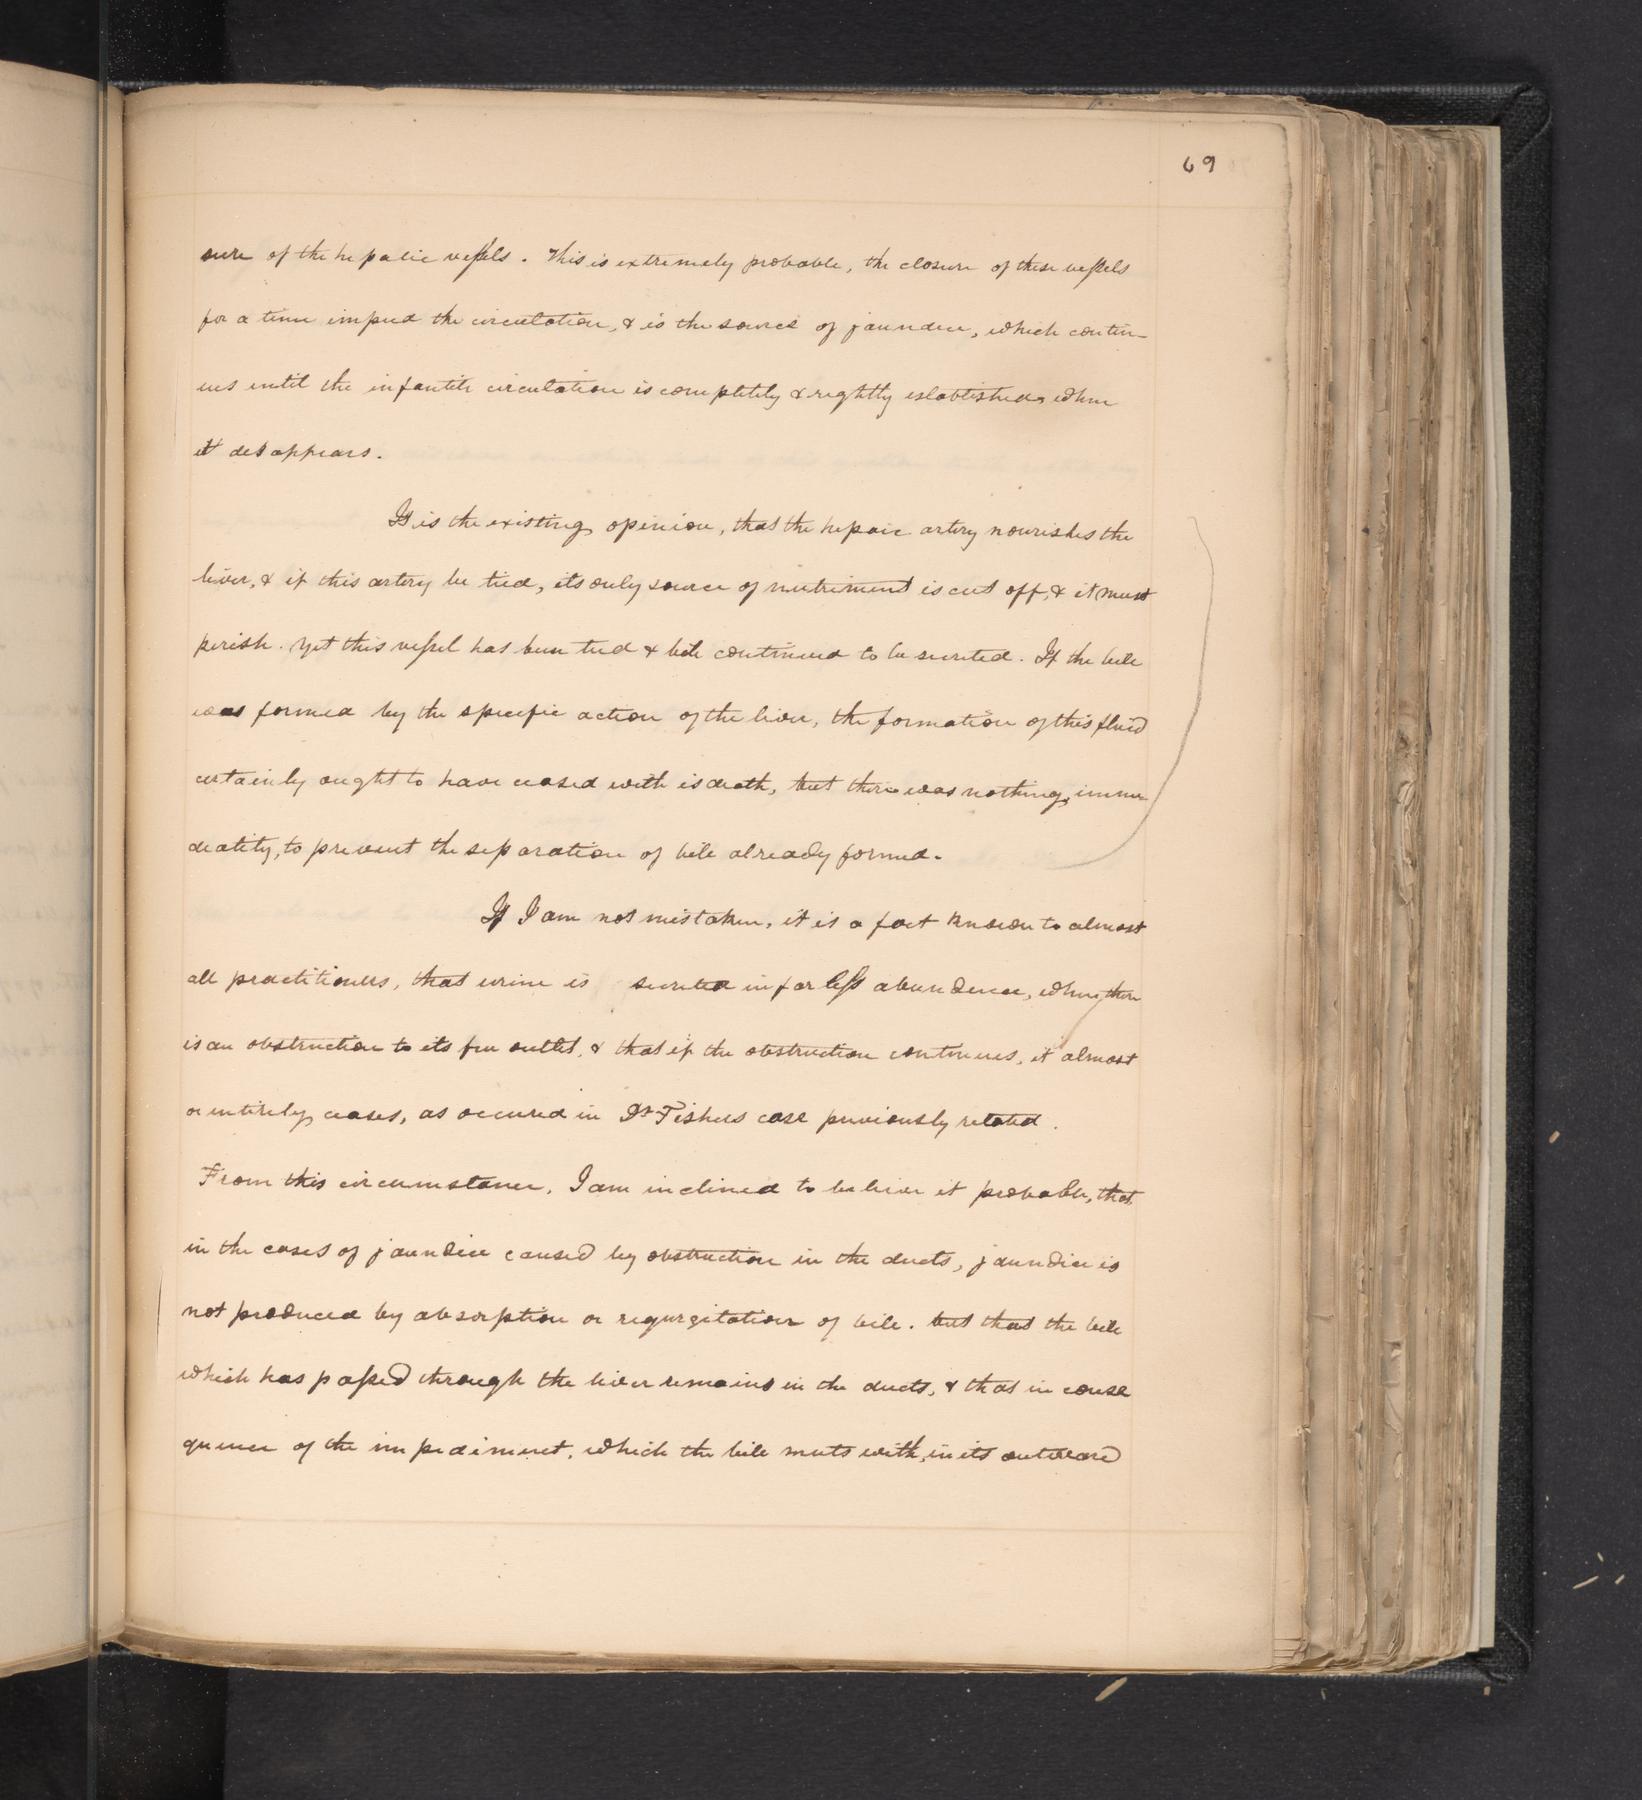 69
sure of the hepatic vessels. This is extremely probable, the closure of these vessels
for a time impeed the circulation, & is the source of jaundice, which contin-
ues until the infantile circulation is completely & rightly established, when
it disappears.
It is the existing opinion, that the hepaic artery nourishes the
liver, & if this artery be tied, its only source of nutriment is cut off, & it must
perish. Yet this vessel has been tied & bile continued to be secreted. If the bile
was formed by the specific action of the liver, the formation of this fluid
certainly ought to have ceased with is death, but there was nothing, imme
diately, to prevent the separation of bile already formed.
If I am not mistaken, it is a fact known to almost
all practitioners, that urine is secreted in far less abundence, when there
is an obstruction to its free outlet, & that if the obstruction continues, it almost
or entirely ceases, as occured in Dr Fishers case previously related.
From this circumstance, I am inclined to believe it probable, that
in the cases of jaundice caused by obstruction in the ducts, jaundice is
not produced by absorption or regurgitation of bile. but that the bile
which has passed through the liver remains in the ducts, & that in conse
quence of the impediment, which the bile meets with, in its outward